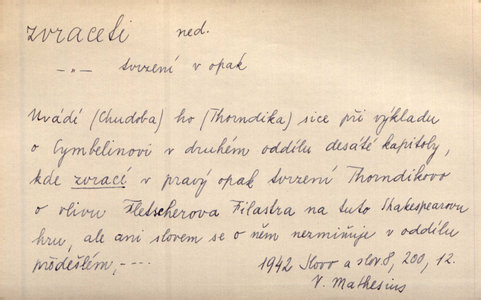 zvraceti ned.
-„- tvrzení v opak
Uvádí (Chudoba) ho (Thorndika) sice při výkladu
o Cymbelinovi v druhém oddílu desáté kapitoly,
kde zvrací v pravý opak tvrzení Thorndikovo
o vlivu Fletscherova Filastra na tuto Shakespearovu
hru, ale ani slovem se o něm nezmiňuje v oddílu
předešlém, ----
1942 Slovo a slov. 8, 200, 12.
V. Mathesius